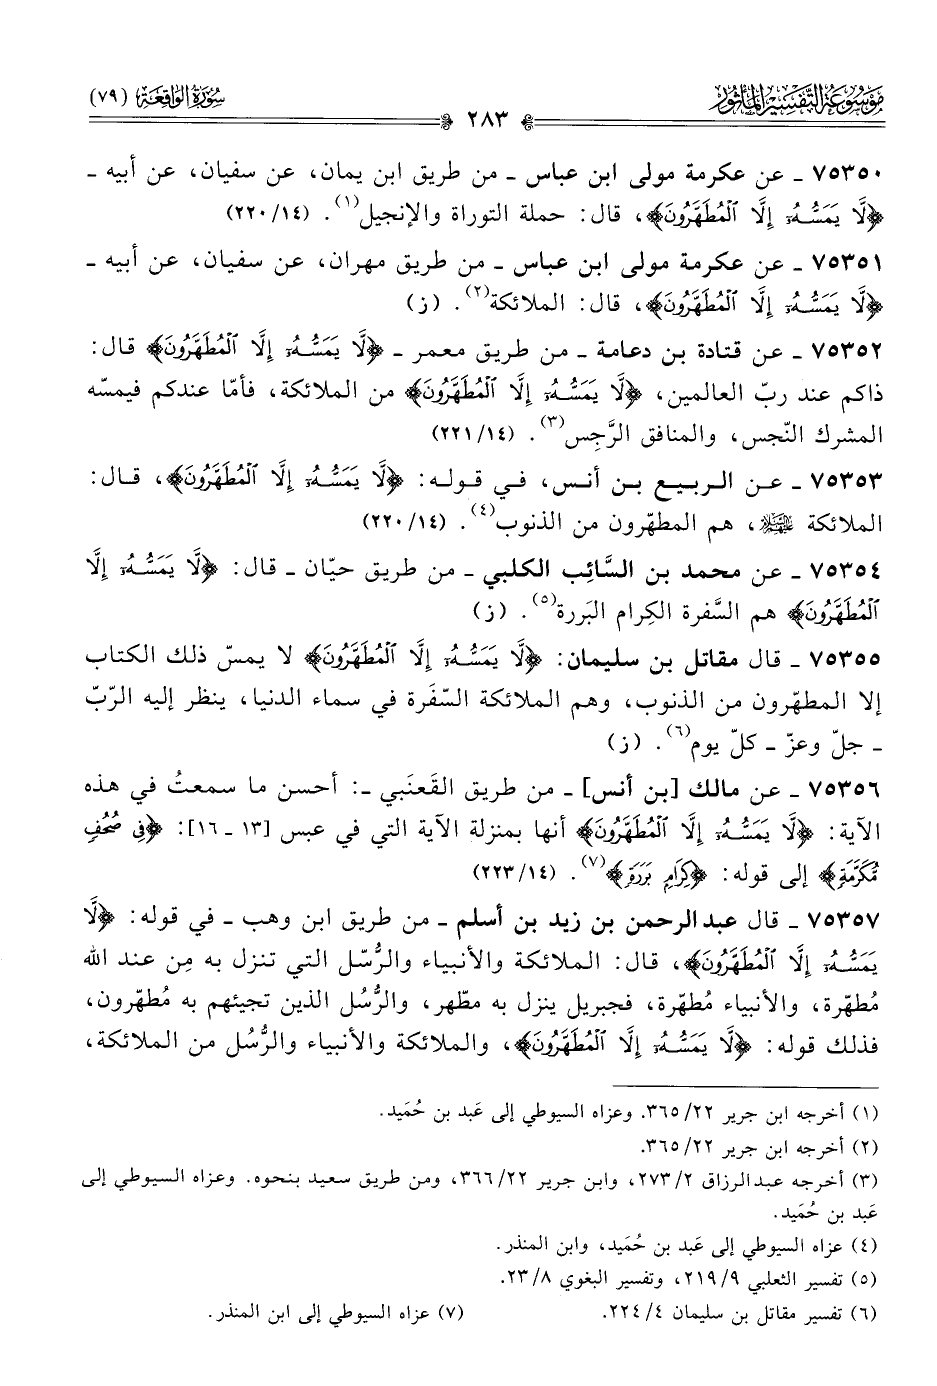 مَوْسُوعَة التَّفْسِيْر المَأْثُور
﴿ ٢٨٣ ﴾
سُورَةُ الوَاقِعَة (٧٩)
٧٥٣٥٠ ـ عن عكرمة مولى ابن عباس ـ من طريق ابن يمان، عن سفيان، عن أبيه ـ
﴿لَّا يَمَسُّهُۥٓ إِلَّا ٱلْمُطَهَّرُونَ﴾، قال: حملة التوراة والإنجيل(١). (١٤/ ٢٢٠)
٧٥٣٥١ ـ عن عكرمة مولى ابن عباس ـ من طريق مهران، عن سفيان، عن أبيه ـ
﴿لَّا يَمَسُّهُۥٓ إِلَّا ٱلْمُطَهَّرُونَ﴾، قال: الملائكة(٢). (ز)
٧٥٣٥٢ ـ عن قتادة بن دعامة ـ من طريق معمر ـ ﴿لَّا يَمَسُّهُۥٓ إِلَّا ٱلْمُطَهَّرُونَ﴾ قال:
ذاكم عند ربّ العالمين، ﴿لَّا يَمَسُّهُۥٓ إِلَّا ٱلْمُطَهَّرُونَ﴾ من الملائكة، فأمّا عندكم فيمسّه
المشرك النّجس، والمنافق الرَّجِس(٣). (١٤/ ٢٢١)
٧٥٣٥٣ ـ عن الربيع بن أنس، في قوله: ﴿لَّا يَمَسُّهُۥٓ إِلَّا ٱلْمُطَهَّرُونَ﴾، قال:
الملائكة ﵈، هم المطهّرون من الذنوب(٤). (١٤/ ٢٢٠)
٧٥٣٥٤ ـ عن محمد بن السَّائِب الكلبي ـ من طريق حيّان ـ قال: ﴿لَّا يَمَسُّهُۥٓ إِلَّا
ٱلْمُطَهَّرُونَ﴾ هم السَّفرة الكِرام البَررة(٥). (ز)
٧٥٣٥٥ ـ قال مقاتل بن سليمان: ﴿لَّا يَمَسُّهُۥٓ إِلَّا ٱلْمُطَهَّرُونَ﴾ لا يمسّ ذلك الكتاب
إلا المطهّرون من الذنوب، وهم الملائكة السّفَرة في سماء الدنيا، ينظر إليه الربّ
ـ جلّ وعزّ ـ كلّ يوم(٦). (ز)
٧٥٣٥٦ ـ عن مالك [بن أنس] ـ من طريق القَعنَبي ـ: أحسن ما سمعتُ في هذه
الآية: ﴿لَّا يَمَسُّهُۥٓ إِلَّا ٱلْمُطَهَّرُونَ﴾ أنها بمنزلة الآية التي في عبس [١٣ ـ ١٦]: ﴿فِى صُحُفٍ
مُّكَرَّمَةٍ﴾ إلى قوله: ﴿كِرَامٍ بَرَرَةٍ﴾(٧). (١٤/ ٢٢٣)
٧٥٣٥٧ ـ قال عبدالرحمن بن زيد بن أسلم ـ من طريق ابن وهب ـ في قوله: ﴿لَّا
يَمَسُّهُۥٓ إِلَّا ٱلْمُطَهَّرُونَ﴾، قال: الملائكة والأنبياء والرُّسّل التي تنزل به مِن عند الله
مُطهّرة، والأنبياء مُطهّرة، فجبريل ينزل به مطّهر، والرُّسُل الذين تجيئهم به مُطهّرون،
فذلك قوله: ﴿لَّا يَمَسُّهُۥٓ إِلَّا ٱلْمُطَهَّرُونَ﴾، والملائكة والأنبياء والرُّسُل من الملائكة،
(١) أخرجه ابن جرير ٢٢/ ٣٦٥. وعزاه السيوطي إلى عَبد بن حُمَيد.
(٢) أخرجه ابن جرير ٢٢/ ٣٦٥.
(٣) أخرجه عبدالرزاق ٢/ ٢٧٣، وابن جرير ٢٢/ ٣٦٦، ومن طريق سعيد بنحوه. وعزاه السيوطي إلى
عَبد بن حُمَيد.
(٤) عزاه السيوطي إلى عَبد بن حُمَيد، وابن المنذر.
(٥) تفسير الثعلبي ٩/ ٢١٩، وتفسير البغوي ٨/ ٢٣.
(٦) تفسير مقاتل بن سليمان ٤/ ٢٢٤.
(٧) عزاه السيوطي إلى ابن المنذر.